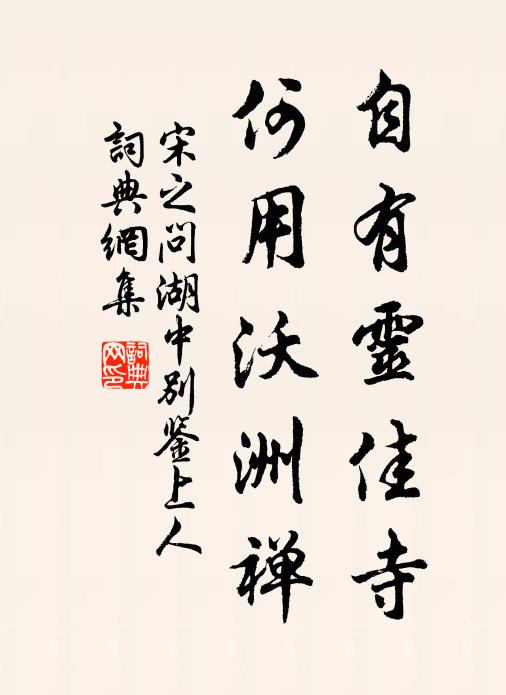 自有靈佳寺
何用沃洲禅
宋之问湖中别鉴上人
詞典網集
詞典
网印